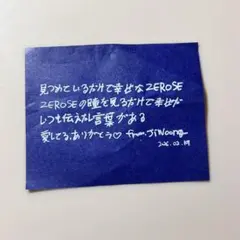 見つめているだけで幸せなZEROSE
ZEROSEの瞳を見るだけで幸せが
いつも伝えたい言葉がある
愛してる、ありがとう♡ from. JiWoong